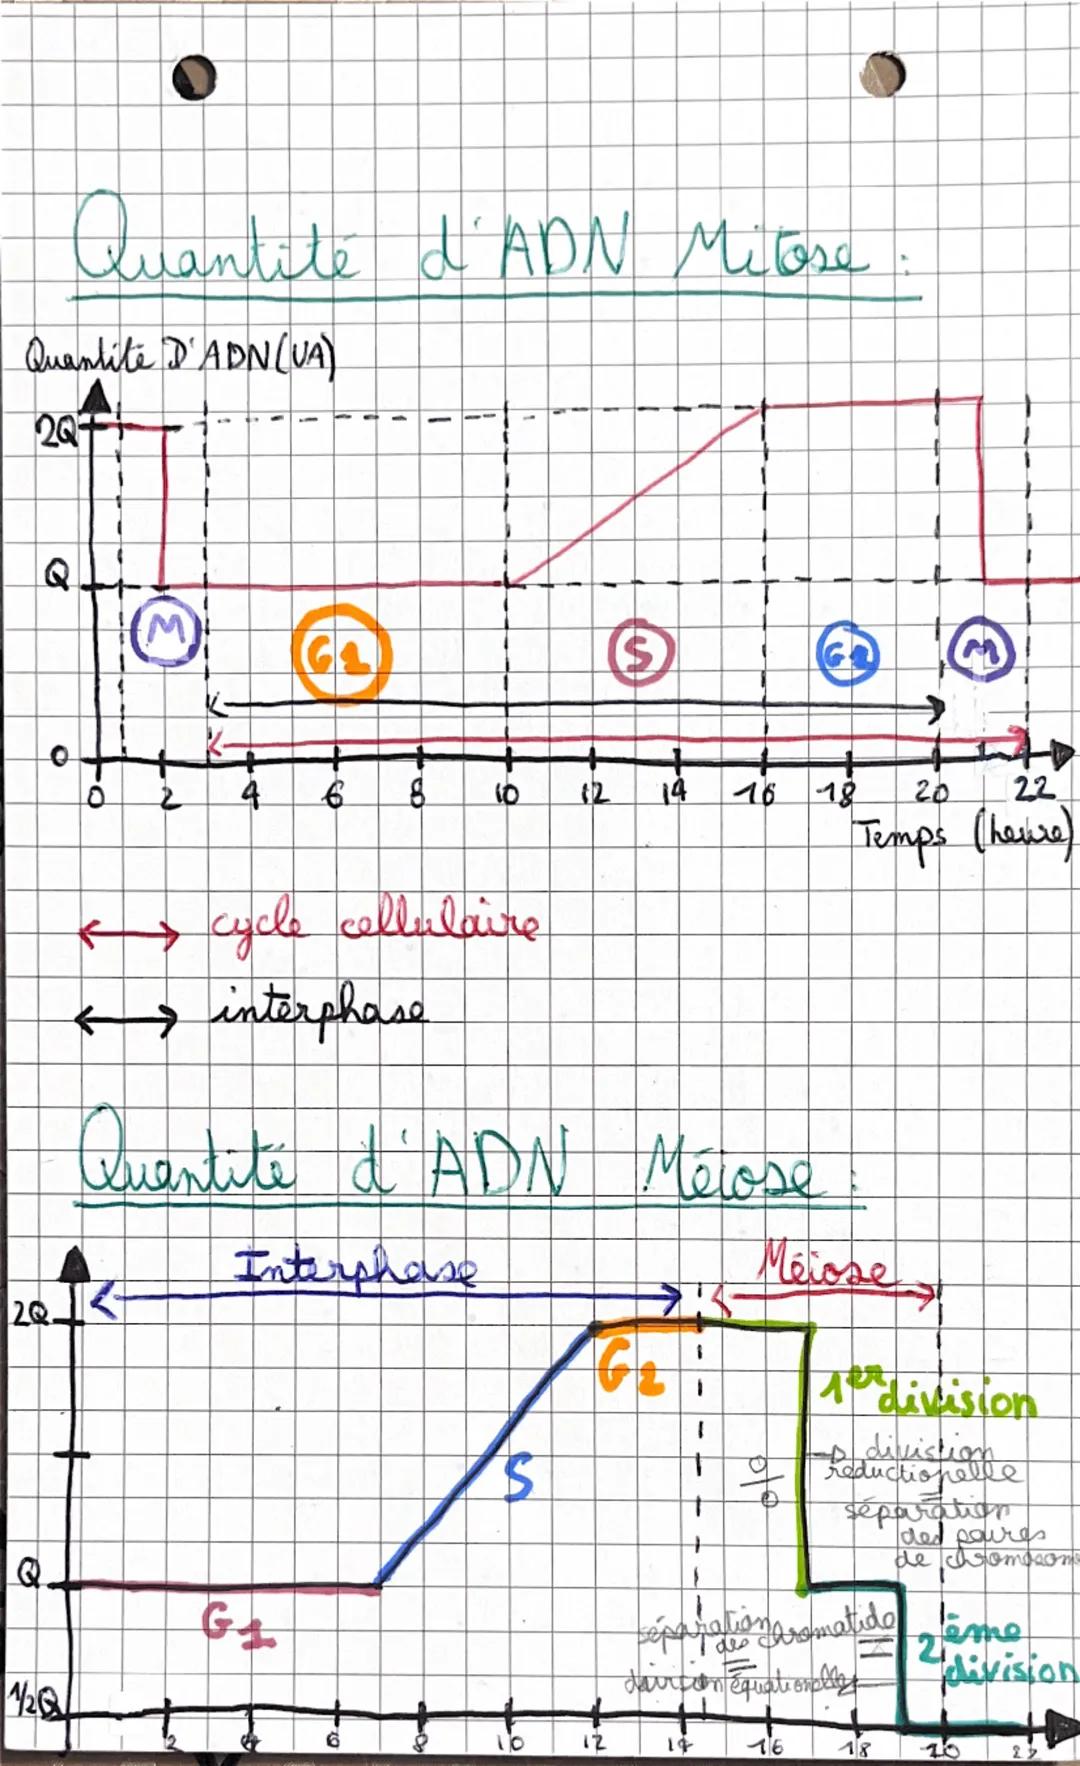 Quantité d'ADN Mitose :
Quantité D'ADN (UA)
2Q
Q
M
G1
S
G2
M
0
0 2 4 6 8 10 12 14 16 18 20 22
Temps (heure)
cycle cellulaire
interphase
Quantité d'ADN Méiose :
Interphase
Méiose
2Q
G2
1er division
division
réductionelle
S
séparation
des paires
de chromosome
Q
G1
séparation
des chromatide
2ème
division
équationelle
division
1/2Q
2 4 6 8 10 12 14 16 18 20 22